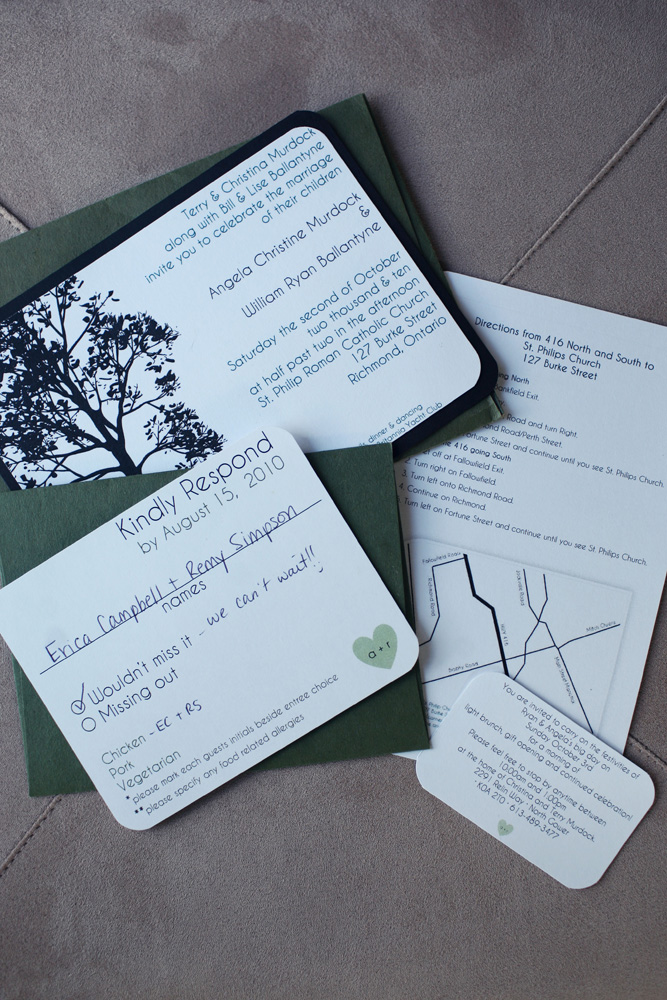 Terry & Christina Murdock
along with Bill & Lise Ballantyne
invite you to celebrate the marriage
of their children
Angela Christine Murdock
&
William Ryan Ballantyne
Saturday the second of October
two thousand & ten
at half past two in the afternoon
St. Philip Roman Catholic Church
127 Burke Street
Richmond, Ontario
dinner & dancing
Yacht Club
Directions from 416 North and South to
St. Philips Church
127 Burke Street
going North
Exit.
Road and turn Right.
Road/Perth Street.
Fortune Street and continue until you see St. Philips Church.
416 going South
off at Fallowfield Exit.
2. Turn right on Fallowfield.
3. Turn left onto Richmond Road.
4. Continue on Richmond.
Turn left on Fortune Street and continue until you see St. Philips Church.
Fallowfield Road
Richmond Road
Hwy 416
Kindly Respond
by August 15, 2010
Erica Campbell + Remy Simpson
names
Wouldn't miss it - we can't wait!!
Missing out
a + r
Chicken - EC + RS
Pork
Vegetarian
* please mark each guests initials beside entree choice
** please specify any food related allergies
You are invited to carry on the festivities of
Ryan & Angela's big day on
Sunday October 3rd
for a morning of
light brunch, gift opening and continued celebration!
Please feel free to stop by anytime between
10:00am and 1:00pm
at the home of Christina and Terry Murdock
2291 Rein Way · North Gower
K0A 2T0 · 613-489-3477